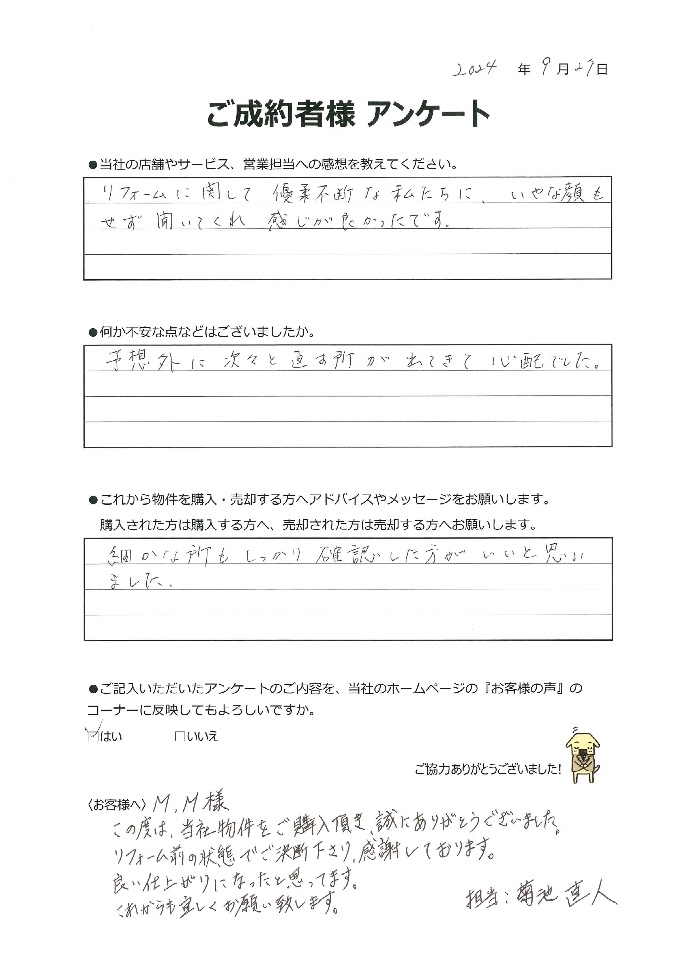 2024 年 9 月 29 日
ご成約者様 アンケート
●当社の店舗やサービス、営業担当への感想を教えてください。
リフォームに関して 優柔不断な私たちに、いやな顔も
せず 聞いてくれ 感じが良かったです。
●何か不安な点などはございましたか。
予想外に 次々と 直す所が 出てきて 心配でした。
●これから物件を購入・売却する方へアドバイスやメッセージをお願いします。
購入された方は購入する方へ、売却された方は売却する方へお願いします。
細かな所も しっかり 確認した方が いいと思い
ました。
●ご記入いただいたアンケートのご内容を、当社のホームページの『お客様の声』の
コーナーに反映してもよろしいですか。
☑はい □いいえ
ご協力ありがとうございました!
〈お客様へ〉 M.M様
この度は、当社物件をご購入頂き、誠にありがとうございました。
リフォーム前の状態でご決断下さり、感謝しております。
良い仕上がりになったと思ってます。
これからも宜しくお願い致します。
担当：菊池 直人